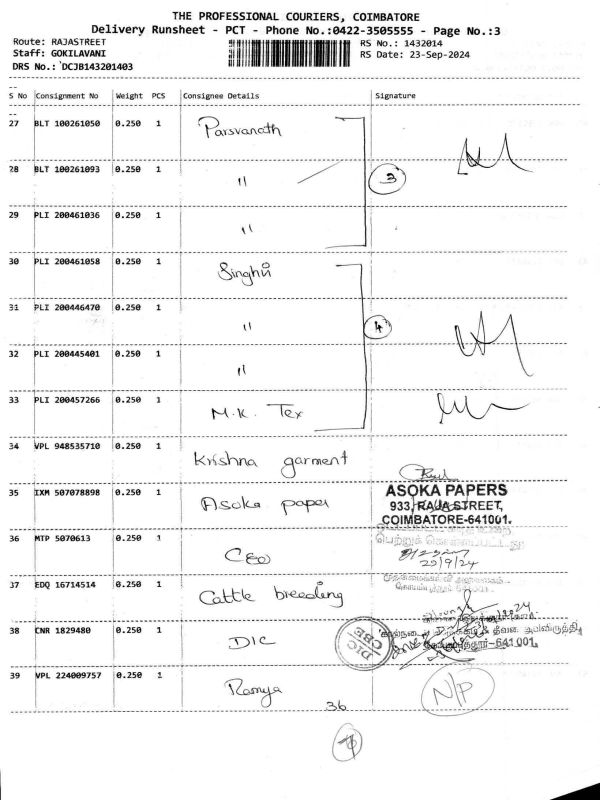 THE PROFESSIONAL COURIERS, COIMBATORE
Delivery Runsheet - PCT - Phone No.:0422-3505555 - Page No.:3
Route: RAJASTREET RS No.: 1432014
Staff: GOKILAVANI RS Date: 23-Sep-2024
DRS No.: DCJB143201403
S No Consignment No Weight PCS Consignee Details Signature
27 BLT 100261050 0.250 1 Parsvanath
28 BLT 100261093 0.250 1 " 3
29 PLI 200461036 0.250 1 "
30 PLI 200461058 0.250 1 Singhvi
31 PLI 200446470 0.250 1 " 4
32 PLI 200445401 0.250 1 "
33 PLI 200457266 0.250 1 M.K. Tex
34 VPL 948535710 0.250 1 Krishna garment
35 IXM 507078898 0.250 1 Asoka paper ASOKA PAPERS
933, RAJA STREET,
COIMBATORE-641001.
36 MTP 5070613 0.250 1 CEO
37 EDQ 16714514 0.250 1 Cattle breeding
38 CNR 1829480 0.250 1 DIC DIC CBE
641 001.
39 VPL 224009757 0.250 1 Ramya N/P
36